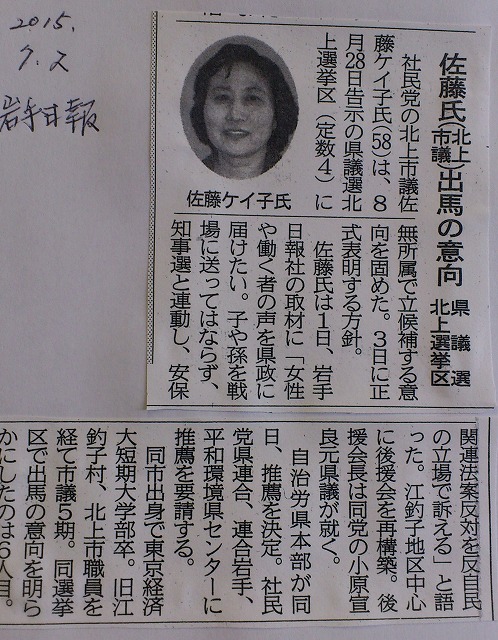 2015.
7.2
岩手日報
佐藤氏(北上市議)出馬の意向
県議選
北上選挙区
社民党の北上市議佐
藤ケイ子氏(58)は、8
月28日告示の県議選北
上選挙区(定数4)に
佐藤ケイ子氏
無所属で立候補する意
向を固めた。3日に正
式表明する方針。
佐藤氏は1日、岩手
日報社の取材に「女性
や働く者の声を県政に
届けたい。子や孫を戦
場に送ってはならず、
知事選と連動し、安保
関連法案反対を反自民
の立場で訴える」と語
った。江釣子地区中心
に後援会を再構築。後
援会長は同党の小原宣
良元県議が就く。
自治労県本部が同
日、推薦を決定。社民
党県連合、連合岩手、
平和環境県センターに
推薦を要請する。
同市出身で東京経済
大短期大学部卒。旧江
釣子村、北上市職員を
経て市議5期。同選挙
区で出馬の意向を明ら
かにしたのは6人目。